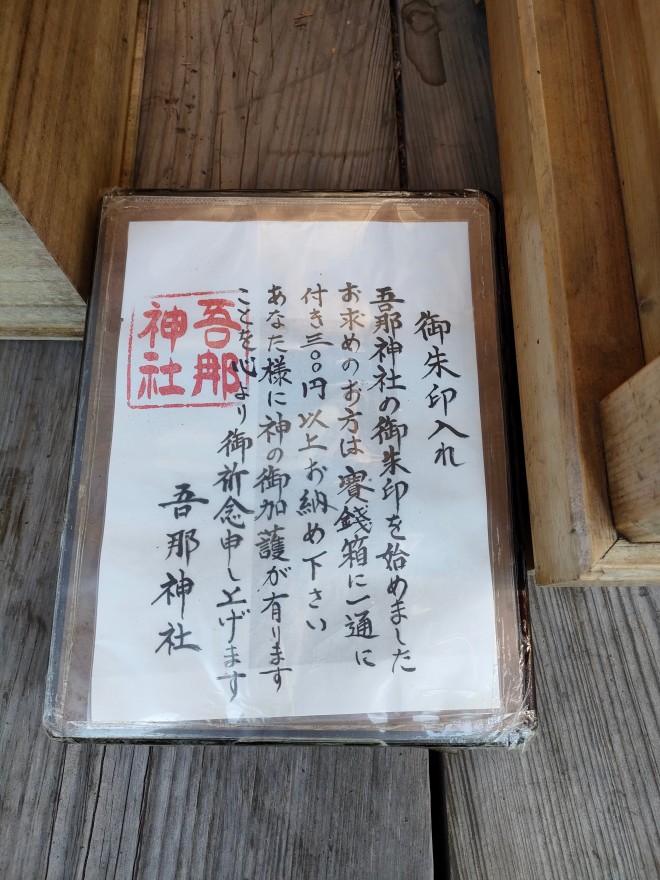 御朱印入れ
吾那神社の御朱印を始めました
お求めのお方は賽錢箱に一通に
付き三〇〇円以上お納め下さい
あなた様に神の御加護が有ります
ことを心より御祈念申し上げます
吾那神社
吾那
神社